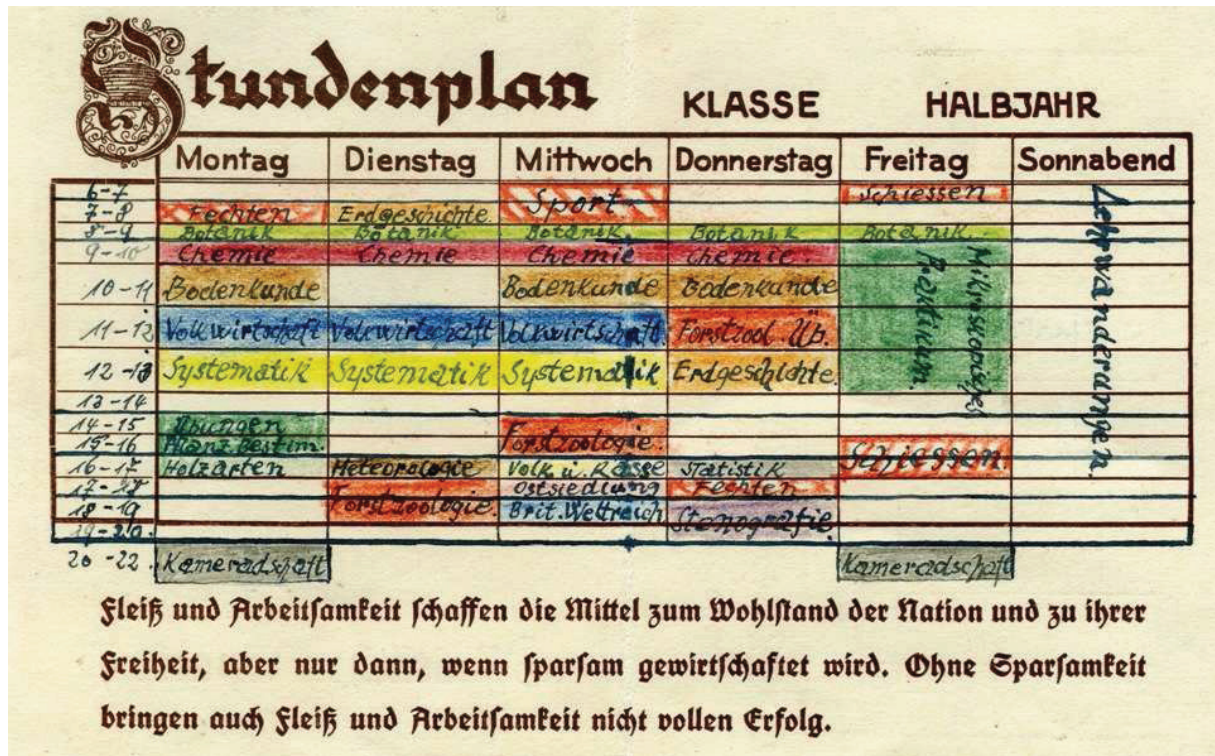 Stundenplan KLASSE HALBJAHR
Montag Dienstag Mittwoch Donnerstag Freitag Sonnabend
6-7 Sport Schiessen Lehrwanderungen.
7-8 Fechten Erdgeschichte
8-9 Botanik Botanik Botanik Botanik Botanik.
9-10 Chemie Chemie Chemie Chemie. Mikroskopisches Praktikum.
10-11 Bodenkunde Bodenkunde Bodenkunde
11-12 Volkwirtschaft Volkwirtschaft Volkwirtschaft. Forstzool. Üb.
12-13 Systematik Systematik Systematik Erdgeschichte.
13-14
14-15 Übungen Forstzoologie.
15-16 Pflanz. Bestim. Schiessen.
16-17 Holzarten Meteorologie Volk u. Rasse Statistik
17-18 Forstzoologie. Ostsiedlung Fechten
18-19 Brit. Weltreich Stenografie.
19-20.
20-22. Kameradschaft Kameradschaft
Fleiß und Arbeitsamkeit schaffen die Mittel zum Wohlstand der Nation und zu ihrer
Freiheit, aber nur dann, wenn sparsam gewirtschaftet wird. Ohne Sparsamkeit
bringen auch Fleiß und Arbeitsamkeit nicht vollen Erfolg.